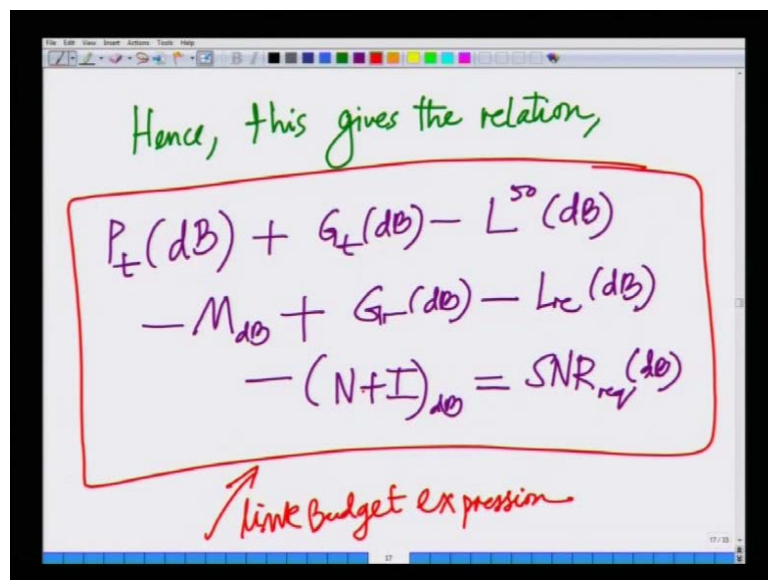 File Edit View Insert Actions Tools Help
Hence, this gives the relation,
P_t(dB) + G_t(dB) − L^50(dB)
− M_dB + G_r(dB) − L_rc(dB)
− (N+I)_dB = SNR_req(dB)
Link Budget expression
17/33
17